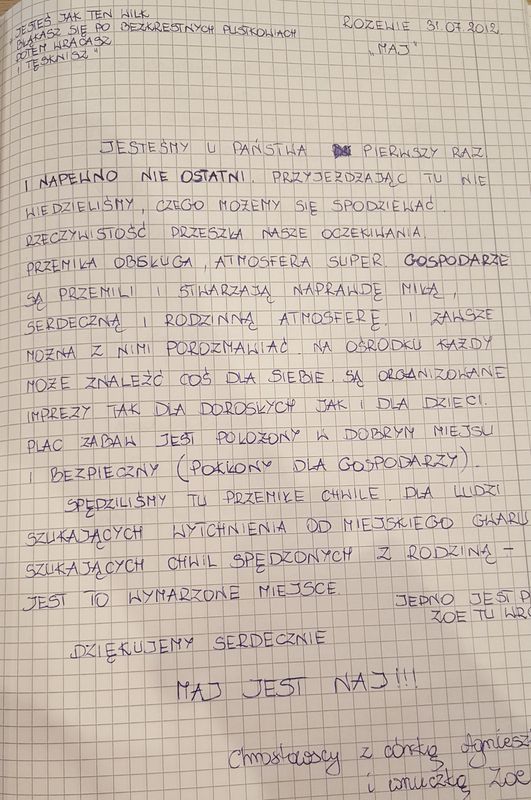 "JESTEŚ JAK TEN WILK
BŁĄKASZ SIĘ PO BEZKRESTNYCH PUSTKOWIACH
POTEM WRACASZ
I TĘSKNISZ"
ROZEWIE 31.07.2012
"MAJ"
JESTEŚMY U PAŃSTWA PIERWSZY RAZ
I NAPEWNO NIE OSTATNI. PRZYJEŻDŻAJĄC TU NIE
WIEDZIELIŚMY, CZEGO MOŻEMY SIĘ SPODZIEWAĆ.
RZECZYWISTOŚĆ PRZESZŁA NASZE OCZEKIWANIA.
PRZEMIŁA OBSŁUGA, ATMOSFERA SUPER. GOSPODARZE
SĄ PRZEMILI I STWARZAJĄ NAPRAWDĘ MIŁĄ,
SERDECZNĄ I RODZINNĄ ATMOSFERĘ. I ZAWSZE
MOŻNA Z NIMI POROZMAWIAĆ. NA OŚRODKU KAŻDY
MOŻE ZNALEŹĆ COŚ DLA SIEBIE. SĄ ORGANIZOWANE
IMPREZY TAK DLA DOROSŁYCH JAK I DLA DZIECI.
PLAC ZABAW JEST POŁOŻONY W DOBRYM MIEJSU
I BEZPIECZNY (POKŁONY DLA GOSPODARZY).
SPĘDZILIŚMY TU PRZEMIŁE CHWILE. DLA LUDZI
SZUKAJĄCYCH WYTCHNIENIA OD MIEJSKIEGO GWARU
SZUKAJĄCYCH CHWIL SPĘDZONYCH Z RODZINĄ –
JEST TO WYMARZONE MIEJSCE.
JEDNO JEST P
ZOE TU WRÓ
DZIĘKUJEMY SERDECZNIE
MAJ JEST NAJ!!!
Chrostowscy z córką Agniesz
i wnuczką Zoe